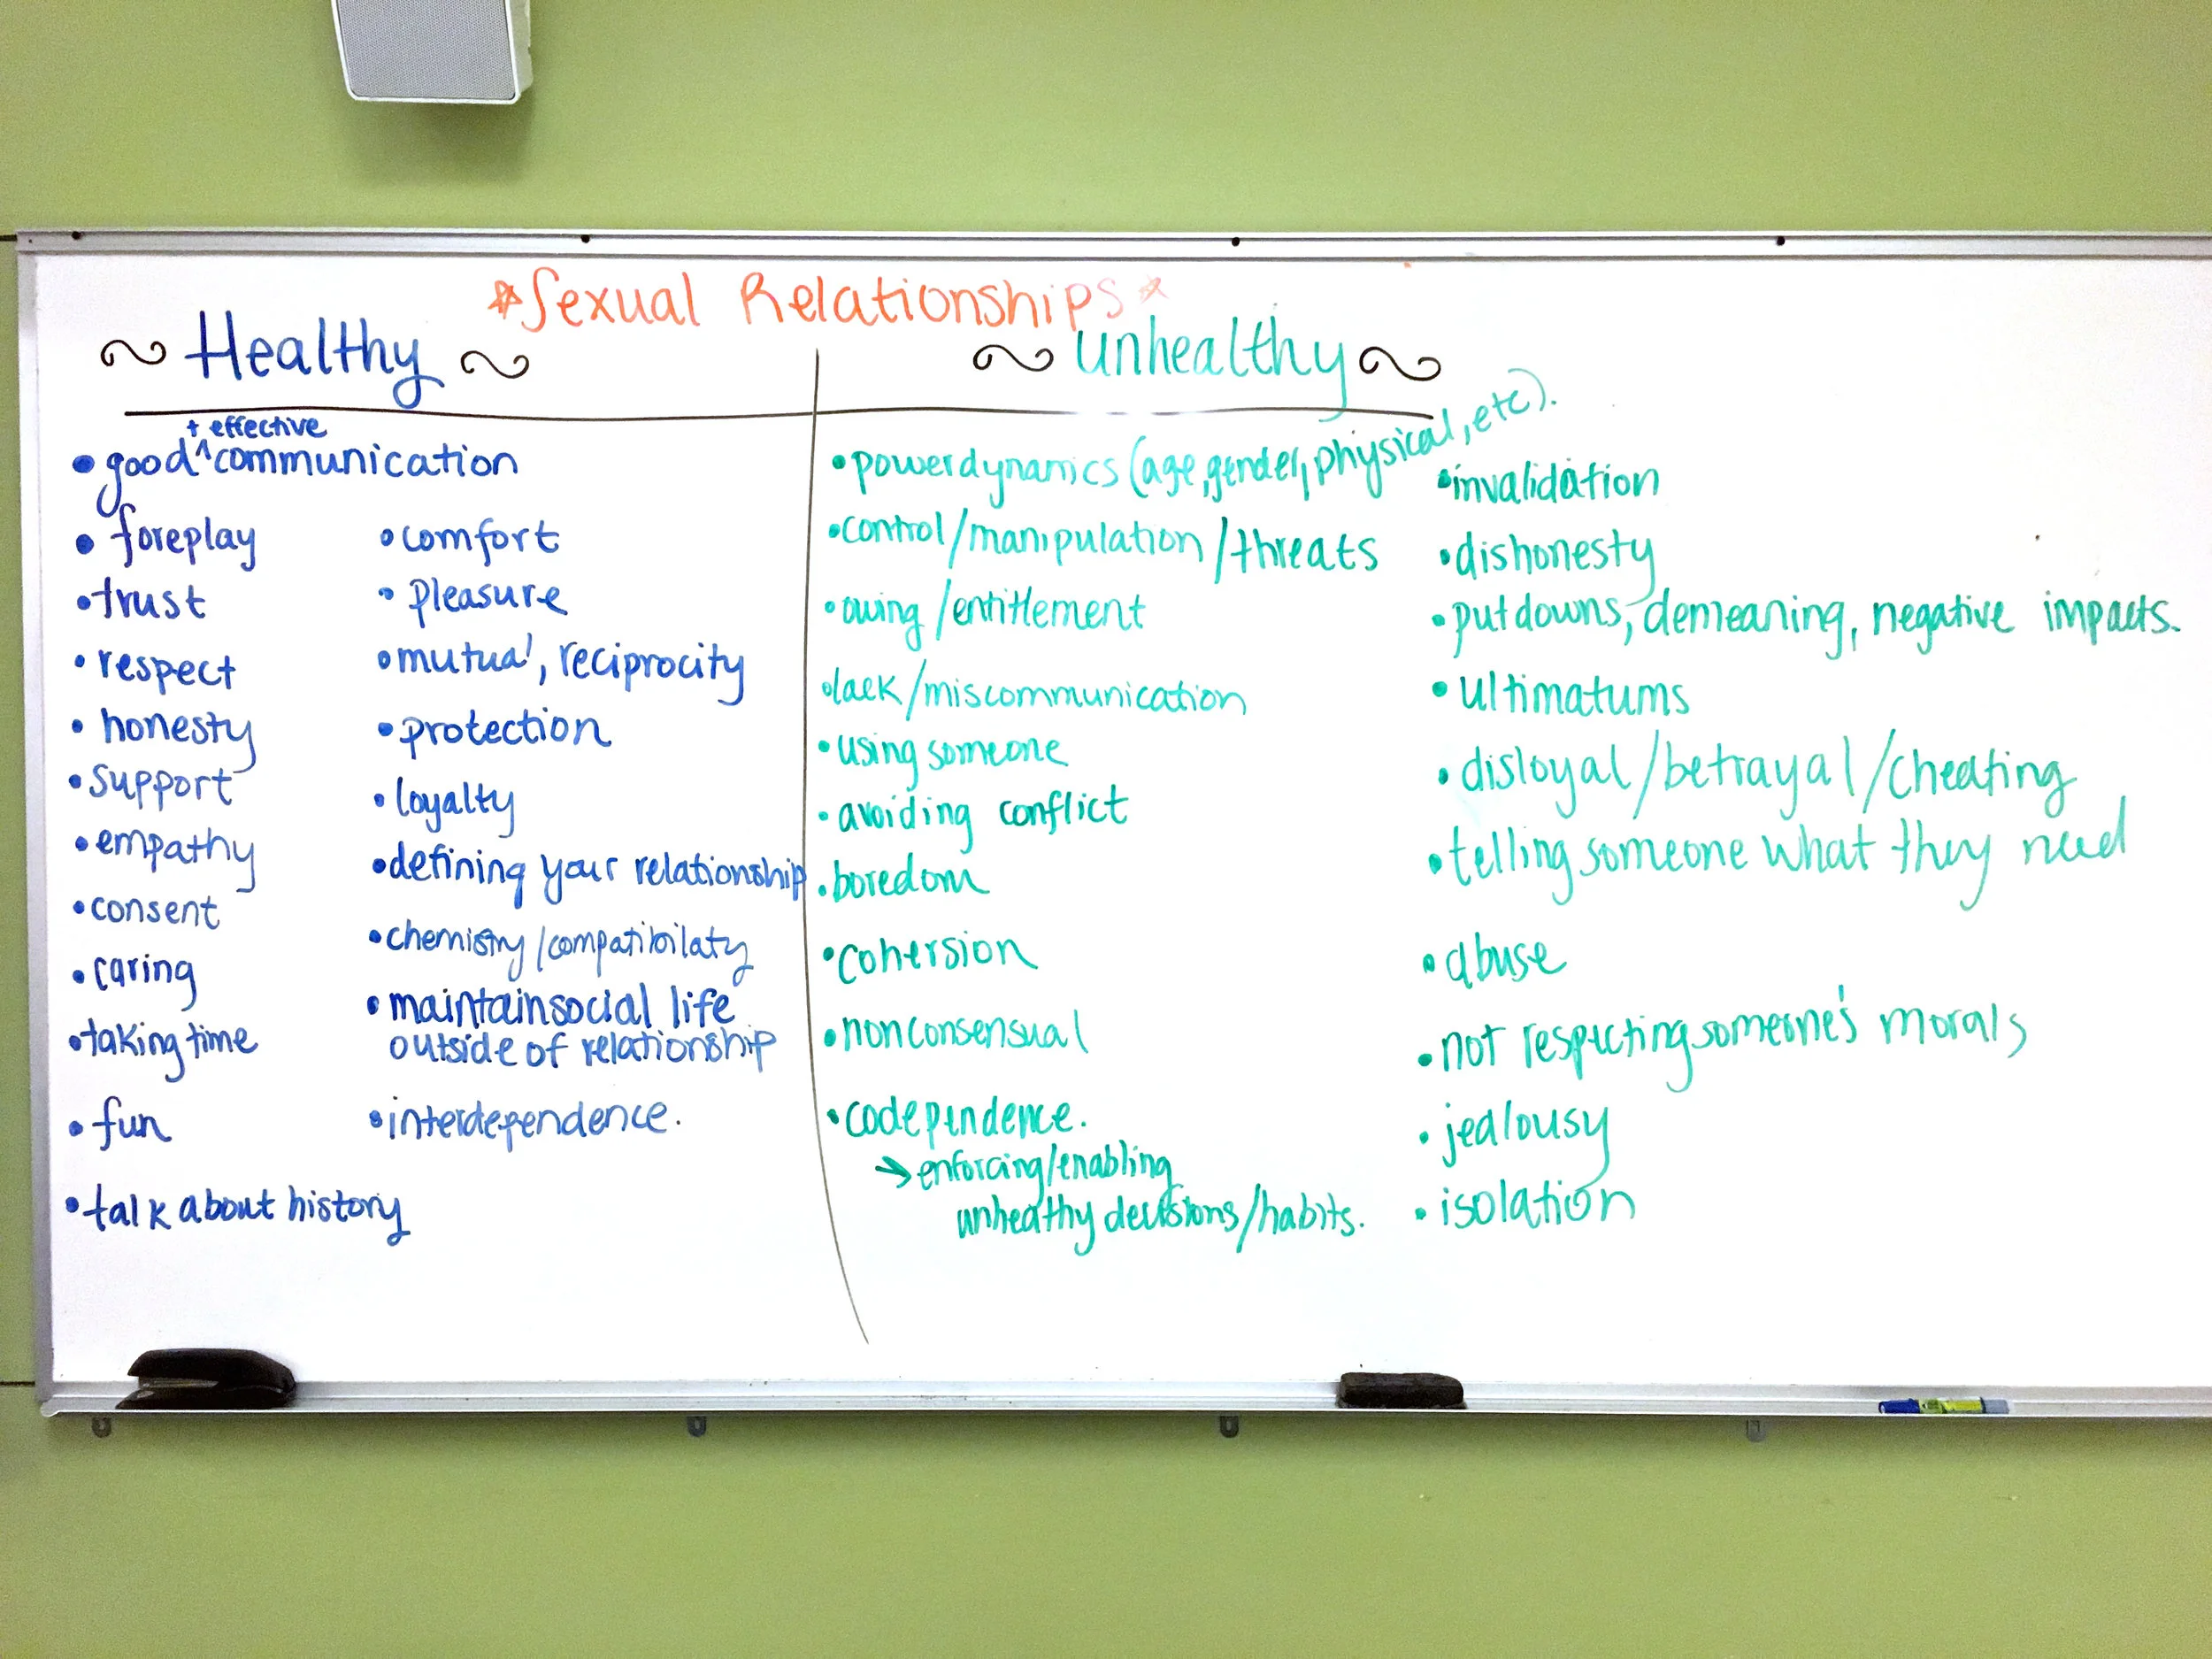 *Sexual Relationships*
~ Healthy ~
+ effective
• good ^ communication
• foreplay
• trust
• respect
• honesty
• support
• empathy
• consent
• caring
• taking time
• fun
• talk about history
• comfort
• pleasure
• mutual, reciprocity
• protection
• loyalty
• defining your relationship
• chemistry/compatibilaty
• maintain social life
outside of relationship
• interdependence.
~ unhealthy ~
• power dynamics (age, gender, physical, etc).
• control/manipulation/threats
• owing/entitlement
• lack/miscommunication
• using someone
• avoiding conflict
• boredom
• cohersion
• nonconsensual
• codependence.
→ enforcing/enabling
unhealthy decisions/habits.
• invalidation
• dishonesty
• put downs, demeaning, negative impacts.
• ultimatums
• disloyal/betrayal/cheating
• telling someone what they need
• abuse
• not respecting someone's morals
• jealousy
• isolation